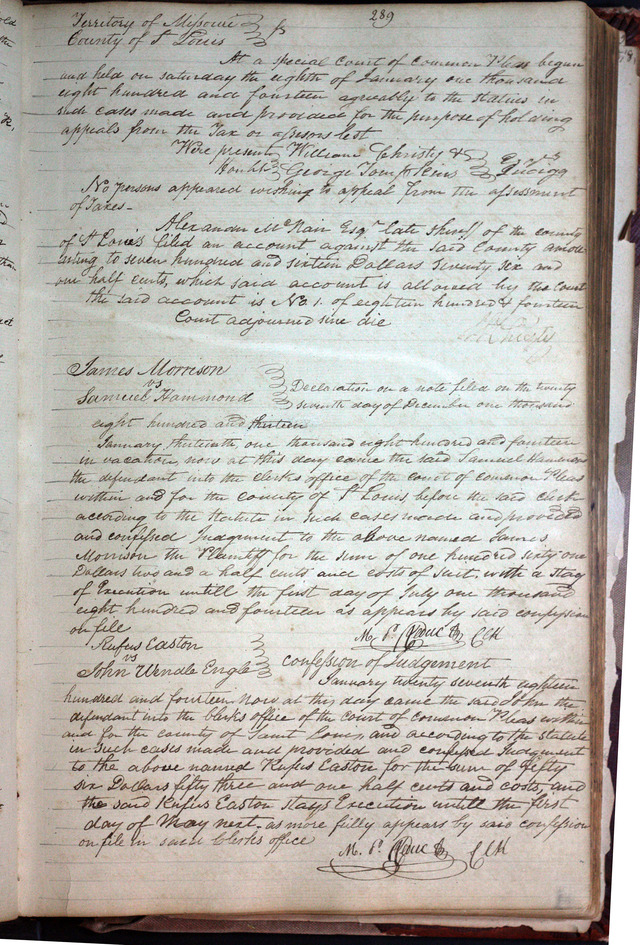 289
Territory of Missouri
County of St Louis
At a special Court of Common Pleas began
and held on saturday the eighth of January one thousand
eight hundred and fourteen agreeably to the statues in
such cases made and provided for the purpose of holding
appeals from the Tax or assesors lest
Were present William Christy &
George Tompkins Esqrs
No persons appeared wishing to appeal from the assessment
of Taxes -
Alexander McNair Esqr late sheriff of the county
of St Louis filed an account against the said County amou
nting to seven hundred and sixteen Dollars seventy six and
one half cents, which said account is allowed by the Court
The said account is No. 1. of eighteen hundred & fourteen
Court adjourned sine die
James Morrison
vs
Samuel Hammond
Declaration on a note filed on the twenty
seventh day of December one thousand
eight hundred and thirteen
January thirteenth one thousand eight hundred and fourteen
in vacation, now at this day came the said Samuel Hammond
the defendant into the clerks office of the court of common Pleas
within and for the county of St Louis, before the said clerk
according to the statute in such cases made and provided
and confessed Judgement to the above named James
Morrison the Plaintiff for the sum of one hundred sixty one
Dollars two and a half cents and costs of suit, with a stay
of Execution untill the first day of July one thousand
eight hundred and fourteen as appears by said confession
on file
M. P. Leduc
Rufus Easton
vs
John Wendle Engle
confession of Judgement
January twenty seventh eighteen
hundred and fourteen now at this day came the said John the
defendant into the clerks office of the court of common Pleas within
and for the county of Saint Louis, and according to the statute
in such cases made and provided and confessed Judgement
to the above named Rufus Easton for the sum of fifty
six Dollars fifty three and one half cents and costs, and
the said Rufus Easton stays Execution untill the first
day of May next. as more fully appears by said confession
on file in said clerks office
M. P. Leduc